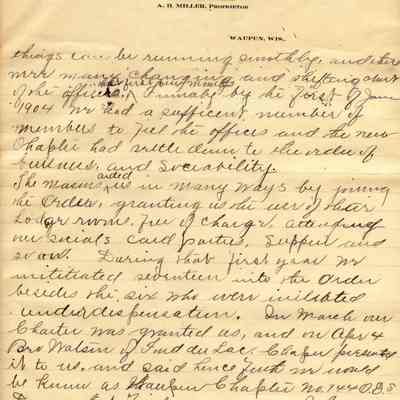 A. H. MILLER, PROPRIETOR
WAUPUN, WIS.
things can be running smothly, and there
were many changing and shifting about
of the officers, Finaly by the first of June
1904 we had a sufficent number of
members to feel the offices and the new
Chapter had settle down to the order of
buisness, and Sociability.
The masons aided us in many ways by joining
the Order, granting us the use of their
Lodge rooms, free of charge, attending
our socials card parties, suppers and
so on. During that first year we
inititated seventeen into the Order
besides the six who were initiated
under dispensation. In March our
Charter was granted us, and on Apr 4
Bro Watson of Fond du Lac, Chapter presented
it to us, and said hence forth we would
be known as Waupun Chapter No. 144 O.E.S